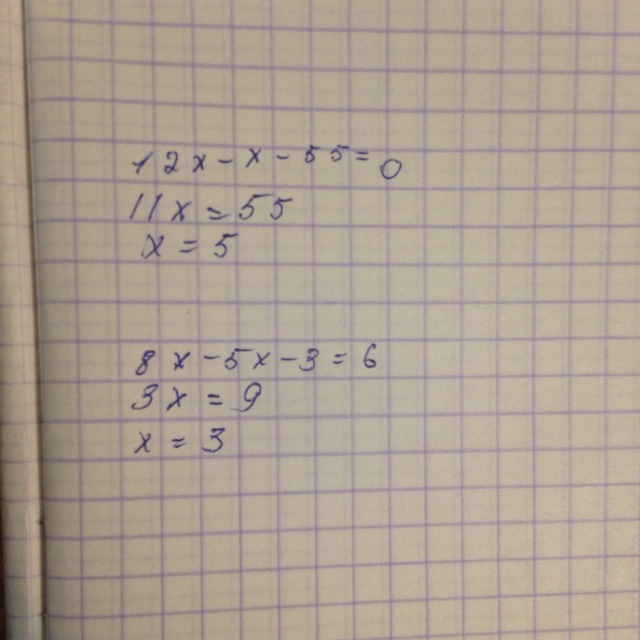 12x-x-55=0
11x=55
x=5
8x-5x-3=6
3x=9
x=3